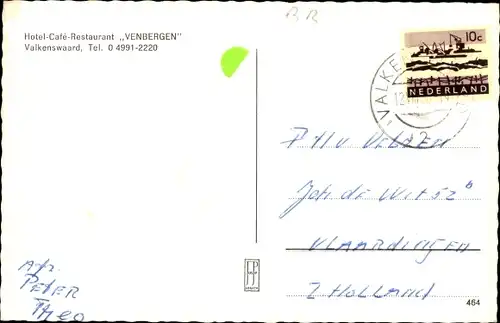 Hotel-Café-Restaurant „VENBERGEN"
Valkenswaard, Tel. 0 4991-2220
BR
10c
NEDERLAND
VALKE
2
v VELZEN
Joh de Witsz
VLAARDINGEN
Z HOLLAND
Afz.
PETER
THEO
464